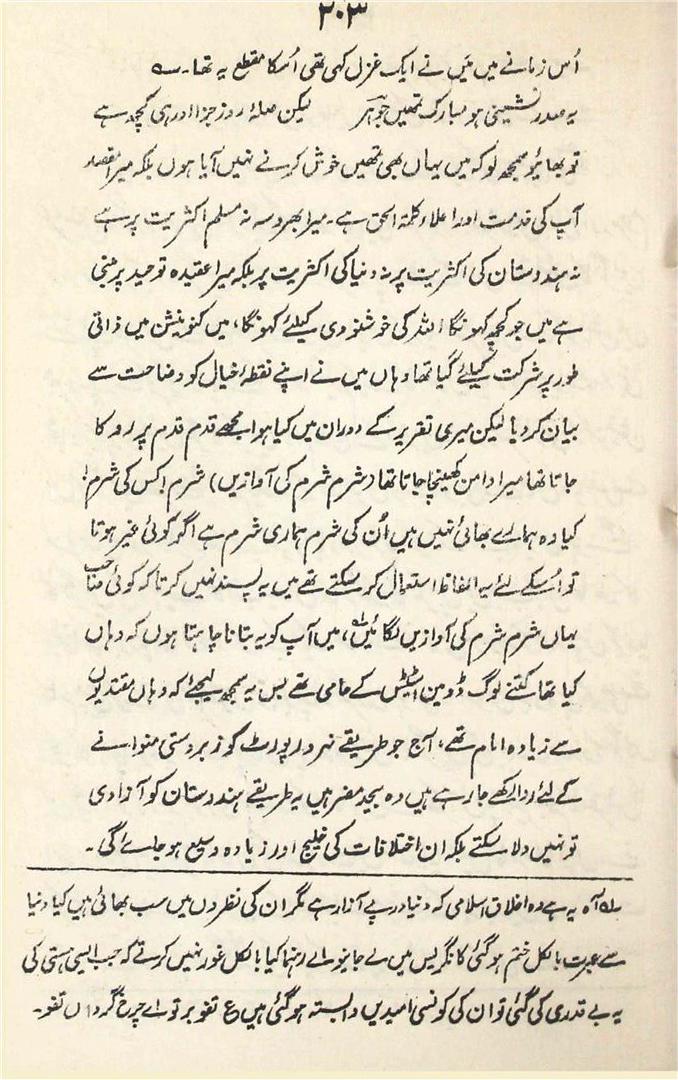 ۲۰۳
اُس زمانے میں مَیں نے ایک غزل کہی تھی اُسکا مقطع یہ تھا۔ ؎
یہ صدر نشینی ہو مبارک تمھیں جوہر لیکن صلۂ روز جزا اور ہی کچھ ہے
تو بھائیو سمجھ لو کہ میں یہاں بھی تمھیں خوش کرنے نہیں آیا ہوں بلکہ میرا مقصد
آپ کی خدمت اور اعلاء کلمۃ الحق ہے۔ میرا بھروسہ نہ مسلم اکثریت پر ہے
نہ ہندوستان کی اکثریت پر نہ دنیا کی اکثریت پر بلکہ میرا عقیدہ توحید پر مبنی
ہے میں جو کچھ کہونگا اللہ کی خوشنودی کیلئے کہونگا، میں کنونیشن میں ذاتی
طور پر شرکت کیلئے گیا تھا وہاں میں نے اپنے نقطۂ خیال کو وضاحت سے
بیان کر دیا لیکن میری تقریر کے دوران میں کیا ہوا مجھے قدم قدم پر روکا
جاتا تھا میرا دامن کھینچا جاتا تھا (شرم شرم کی آوازیں) شرم! کس کی شرم!
کیا وہ ہمارے بھائی نہیں ہیں اُن کی شرم ہماری شرم ہے اگر کوئی غیر ہوتا
تو اُسکے لئے یہ الفاظ استعمال کر سکتے تھے میں یہ پسند نہیں کرتا کہ کوئی صاحب
یہاں شرم شرم کی آوازیں لگائیں لہ، میں آپ کو یہ بتانا چاہتا ہوں کہ وہاں
کیا تھا کتنے لوگ ڈومین اسٹیٹس کے حامی تھے بس یہ سمجھ لیجئے کہ وہاں مقتدیوں
سے زیادہ امام تھے، آج جو طریقے نہرو رپورٹ کو زبردستی منوانے
کے لئے روا رکھے جا رہے ہیں وہ بیحد مضر ہیں یہ طریقے ہندوستان کو آزادی
تو نہیں دلا سکتے بلکہ ان اختلافات کی خلیج اور زیادہ وسیع ہو جائے گی۔
لہ آہ یہ ہے وہ اخلاق اسلامی کہ دنیا درپے آزار ہے مگر ان کی نظروں میں سب بھائی ہیں کیا دنیا
سے عبرت بالکل ختم ہو گئی کانگریس میں لے جانیوالے رہنما کیا بالکل غور نہیں کرتے کہ جب ایسی ہستی کی
یہ بے قدری کی گئی تو ان کی کونسی امیدیں وابستہ ہو گئی ہیں ع تفو بر تو اے چرخ گرداں تفو۔